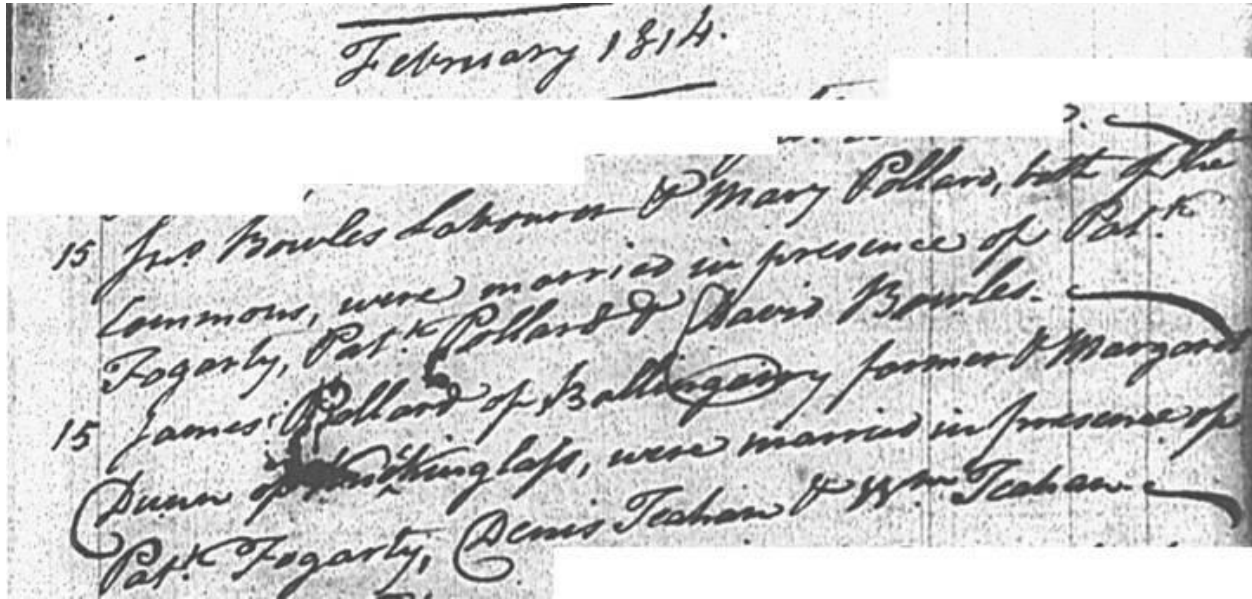 February 1814.
15 Jno. Bowles Labourer & Mary Pollard, both of the
Commons, were married in presence of Patk.
Fogarty, Patk. Pollard & David Bowles.
15 James Pollard of Ballingarry farmer & Margaret
Dunn of glass, were married in presence of
Patk. Fogarty, Denis Teahan & Wm Teahan